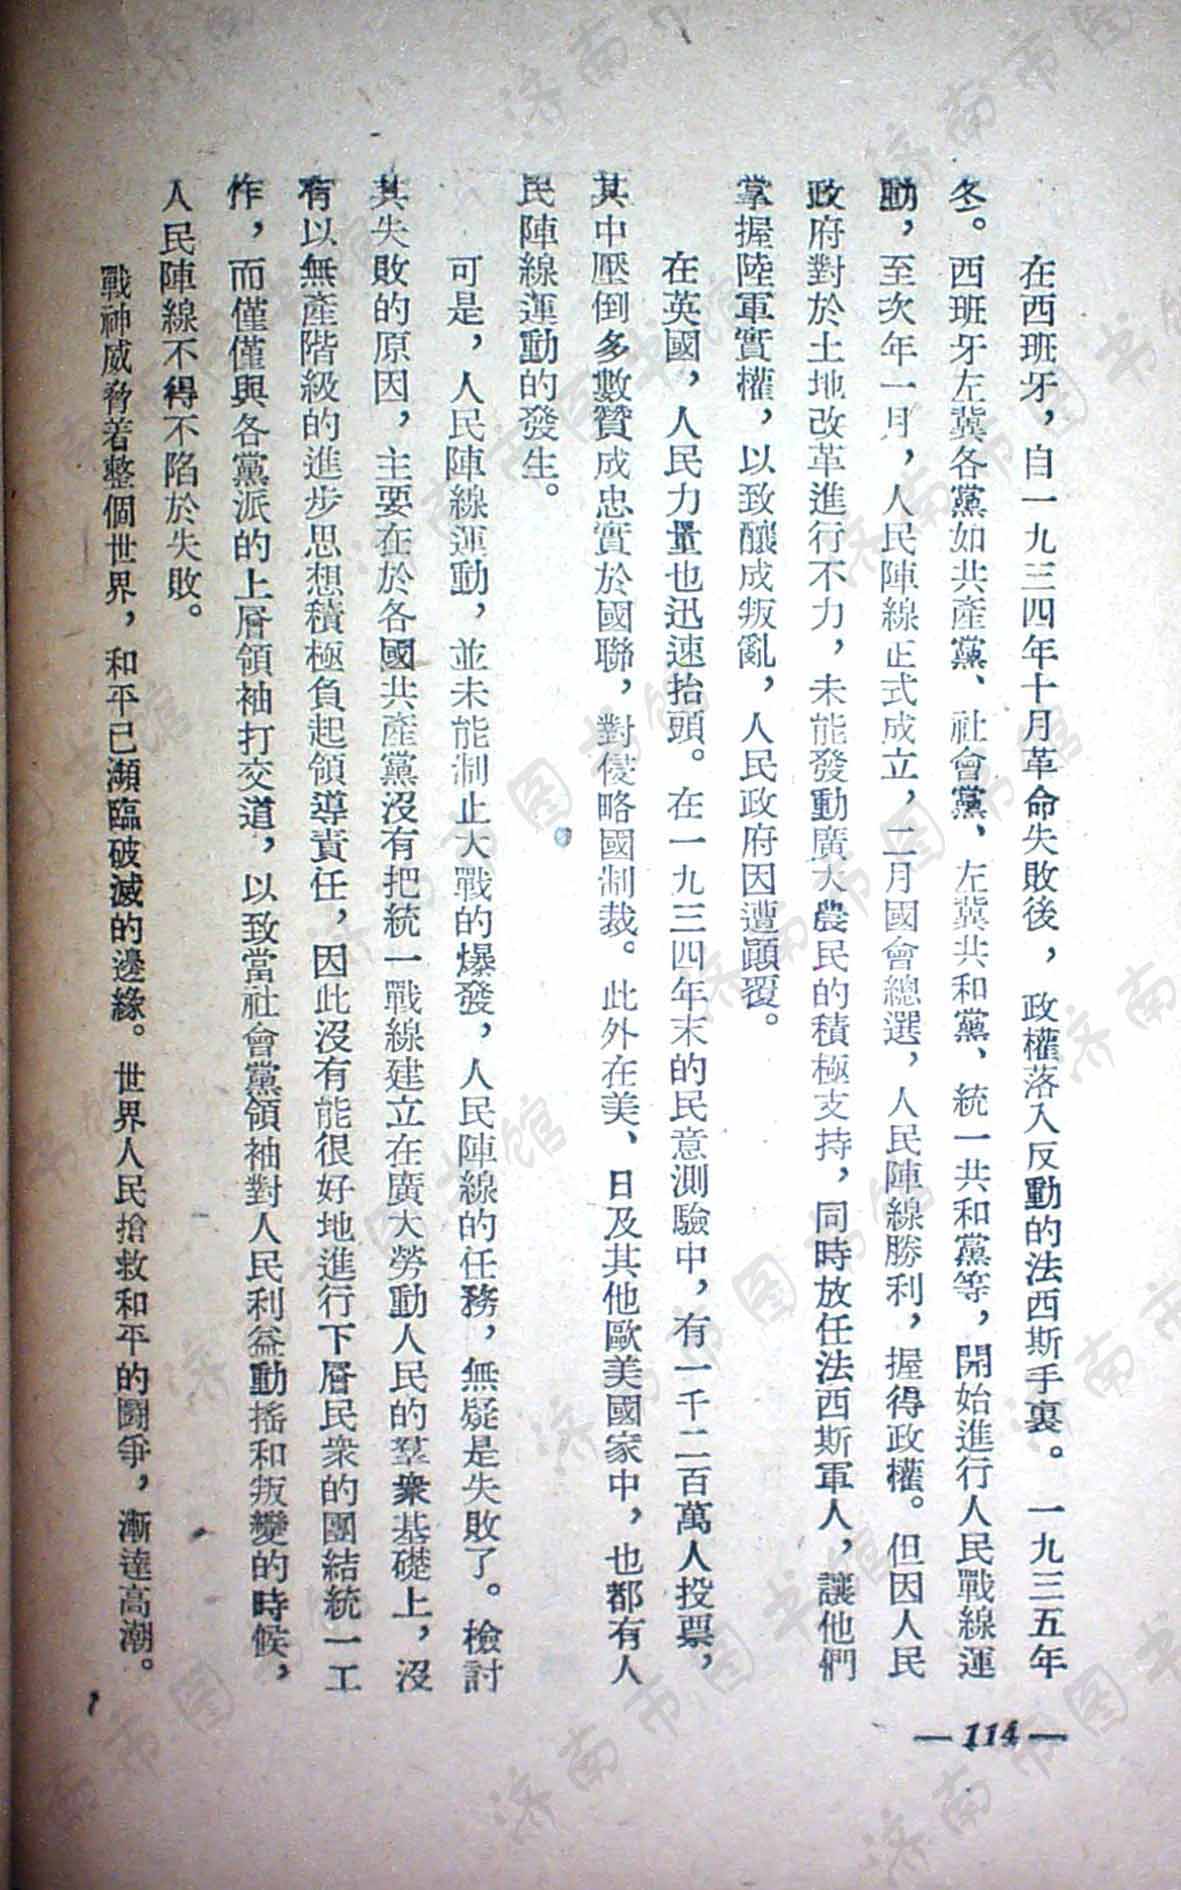 在西班牙，自一九三四年十月革命失敗後，政權落入反動的法西斯手裏。一九三五年
冬。西班牙左冀各黨如共產黨、社會黨、左冀共和黨、統一共和黨等，開始進行人民戰線運
動，至次年一月，人民陣線正式成立，二月國會總選，人民陣線勝利，握得政權。但因人民
政府對於土地改革進行不力，未能發動廣大農民的積極支持，同時放任法西斯軍人，讓他們
掌握陸軍實權，以致釀成叛亂，人民政府因遭顚覆。
在英國，人民力量也迅速抬頭。在一九三四年末的民意測驗中，有一千二百萬人投票，
其中壓倒多數贊成忠實於國聯，對侵略國制裁。此外在美、日及其他歐美國家中，也都有人
民陣線運動的發生。
可是，人民陣線運動，並未能制止大戰的爆發，人民陣線的任務，無疑是失敗了。檢討
其失敗的原因，主要在於各國共產黨沒有把統一戰線建立在廣大勞動人民的羣衆基礎上，沒
有以無產階級的進步思想積極負起領導責任，因此沒有能很好地進行下層民衆的團結統一工
作，而僅僅與各黨派的上層領袖打交道，以致當社會黨領袖對人民利益動搖和叛變的時候，
人民陣線不得不陷於失敗。
戰神威脅着整個世界，和平已瀕臨破滅的邊緣。世界人民搶救和平的鬪爭，漸達高潮。
—114—
济南市图书馆